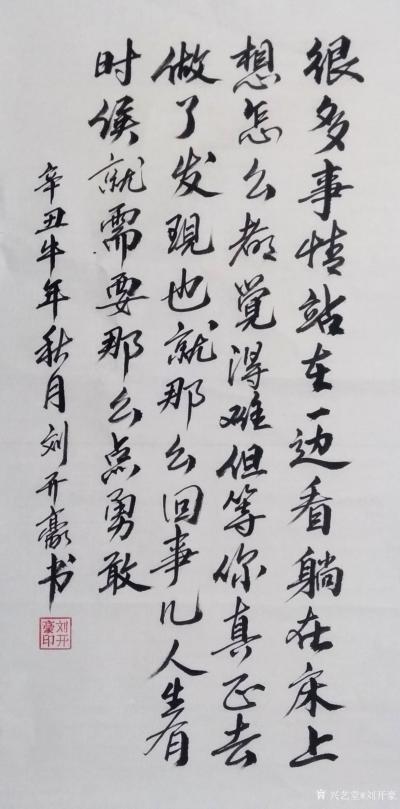 很多事情站在一边看躺在床上
想怎么都觉得难但等你真正去
做了发现也就那么回事儿人生有
时候就需要那么点勇敢
辛丑牛年秋月刘开豪书
刘开豪印
兴艺堂#刘开豪